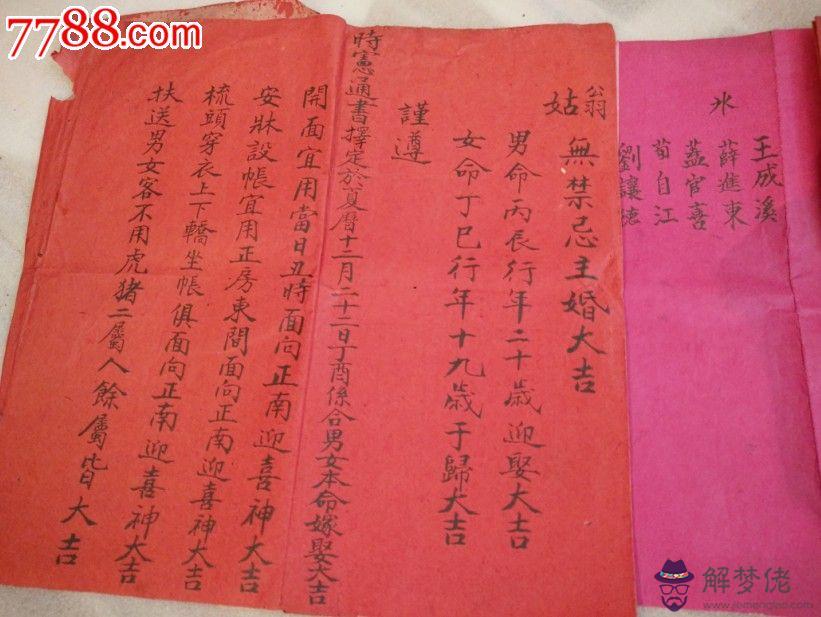 7788.com
冰
王成溪
薛進東
蓋官喜
荀自江
劉讓德
翁姑無禁忌主婚大吉
男命丙辰行年二十歲迎娶大吉
女命丁巳行年十九歲于歸大吉
謹遵
時憲通書擇定於夏曆十二月二十二日丁酉係合男女本命嫁娶大吉
開面宜用當日丑時面向正南迎喜神大吉
安牀設帳宜用正房東間面向正南迎喜神大吉
梳頭穿衣上下轎坐帳俱面向正南迎喜神大吉
扶送男女客不用虎猪二屬人餘屬皆大吉
解梦佬
www.jiemenglao.com